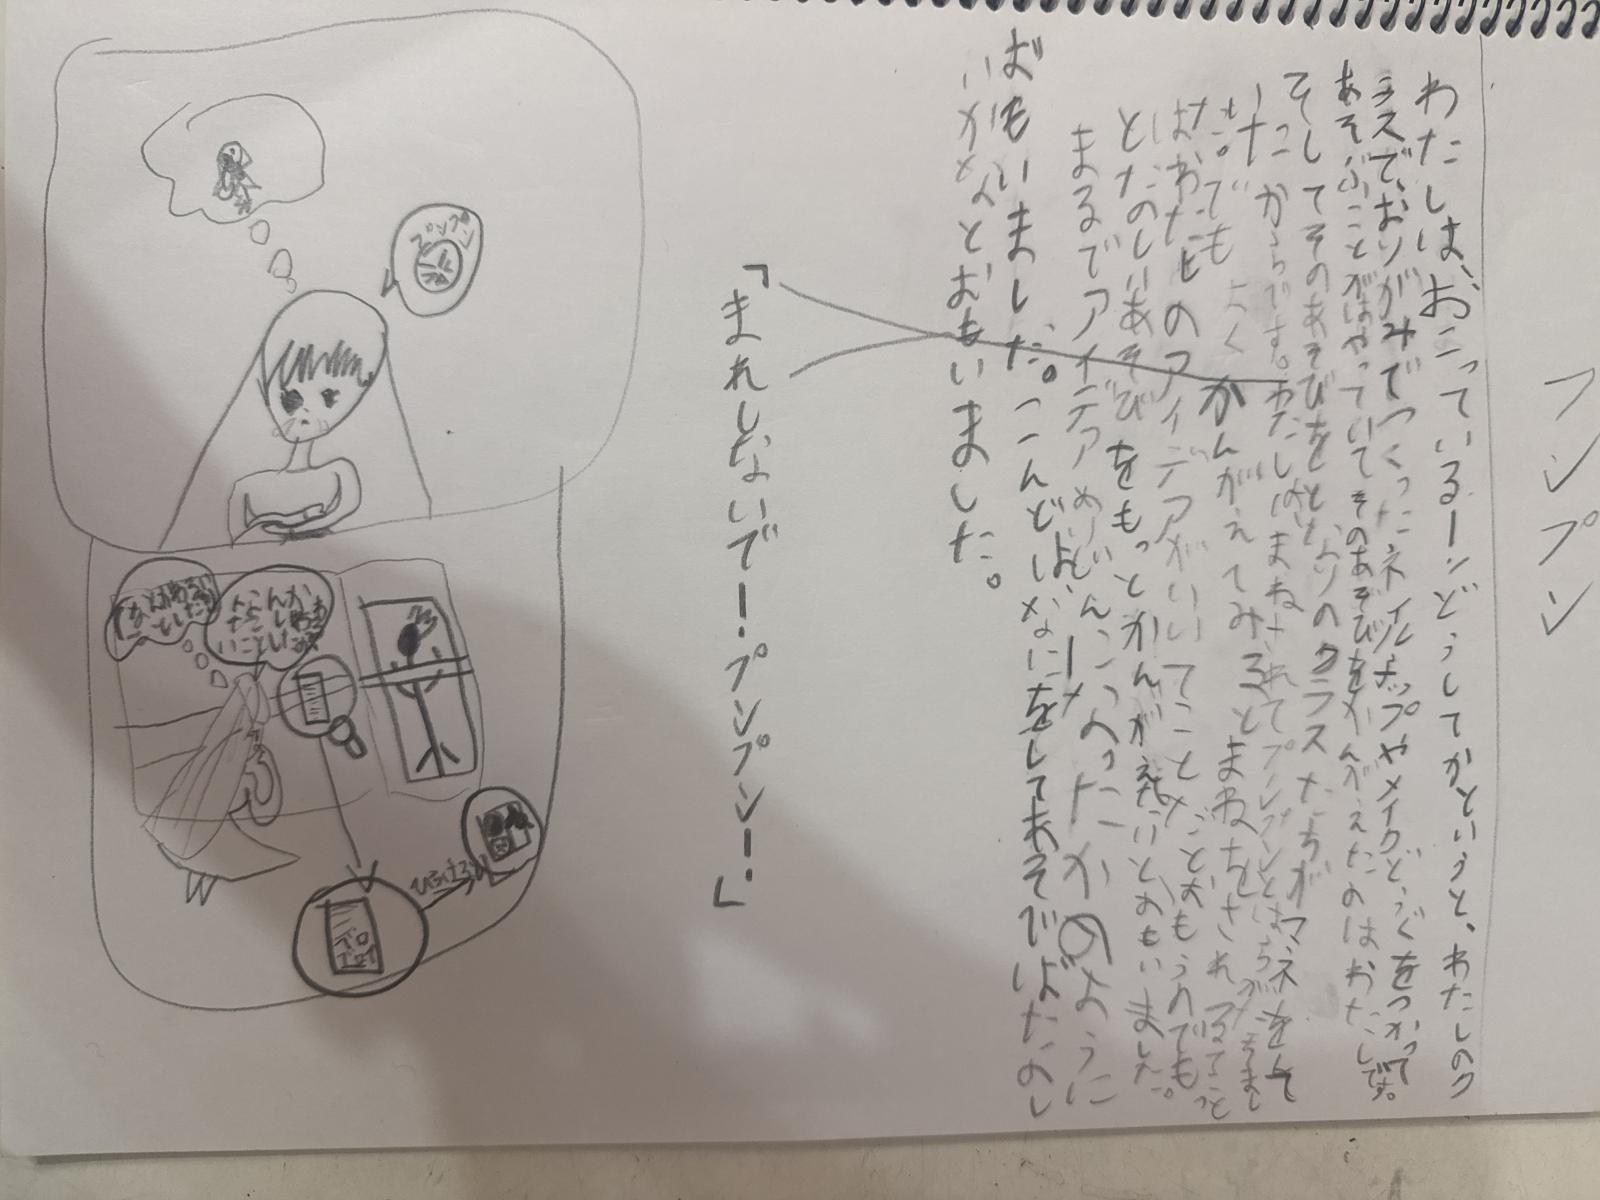 プンプン
わたしは、おこっているーンどうしてかというと、わたしのク
ラスで、おりがみでつくったネイルチップやメイクどうぐをつかって
あそぶことがはやっていてそのあそびをかんがえたのはわたしです。
そしてそのあそびをとなりのクラスたちがマネをして
いったからです。わたしはまねされてプンプンとはらがたちまし
た。でもよくかんがえてみるとまねをされるってこと
はわたしのアイデアがいいってことだとおもうのでもっ
とたのしいあそびをもっとかんがえたいとおもいました。
まるでアイデアめいじんになったかのように
おもいました。こんどはなにをしてあそんだらたのし
いかなとおもいました。
「まねしないでー!プンプンー!」
プンプン
ひらける